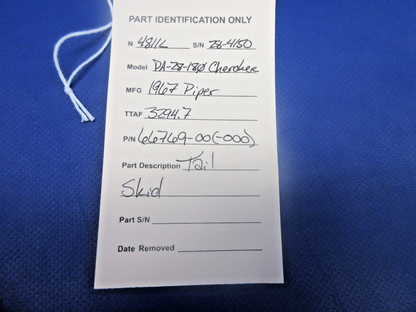 PART IDENTIFICATION ONLY
N 4811L S/N 28-4150
Model PA-28-180 Cherokee
MFG 1967 Piper
TTAF 3294.7
P/N 66769-00(-000)
Part Description Tail
Skid
Part S/N
Date Removed